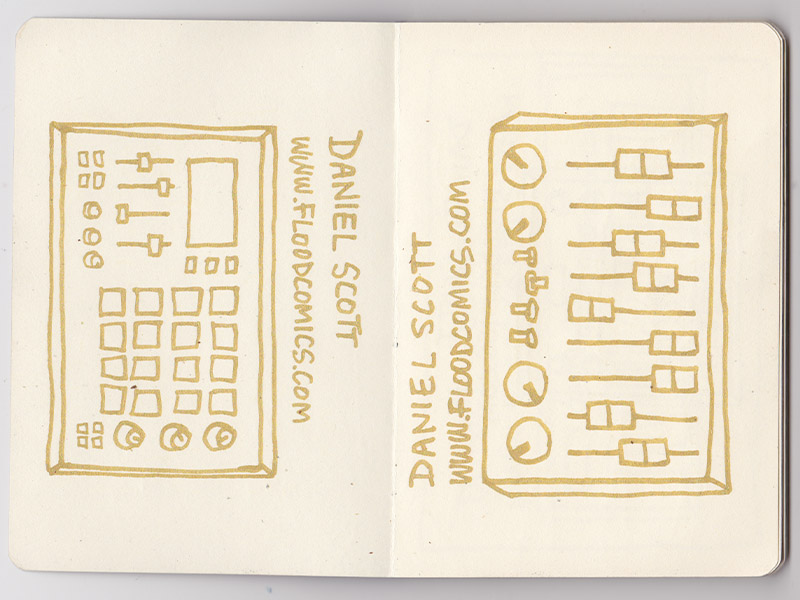 DANIEL SCOTT
WWW.FLOODCOMICS.COM
DANIEL SCOTT
WWW.FLOODCOMICS.COM